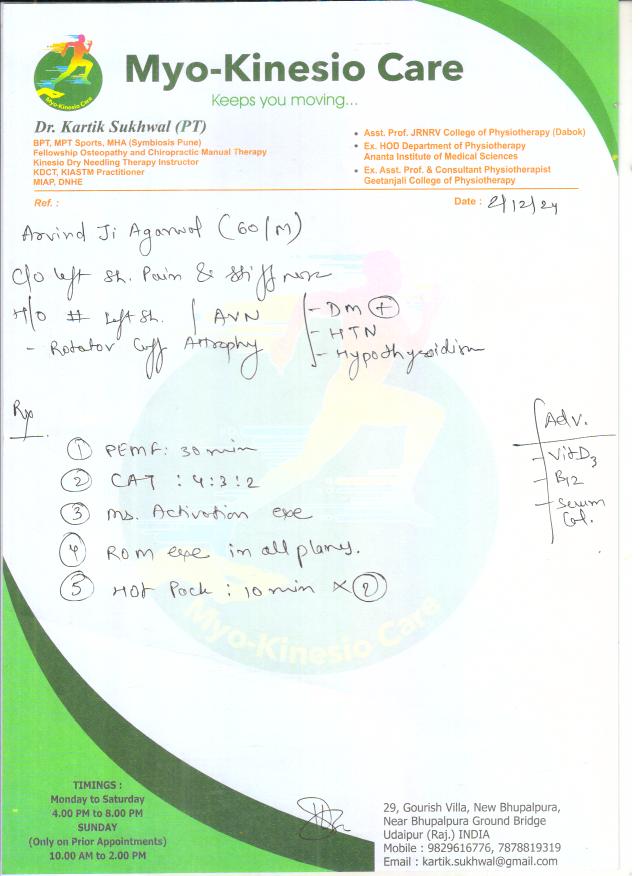 Myo-Kinesio Care
Myo-Kinesio Care
Keeps you moving...
Dr. Kartik Sukhwal (PT)
BPT, MPT Sports, MHA (Symbiosis Pune)
Fellowship Osteopathy and Chiropractic Manual Therapy
Kinesio Dry Needling Therapy Instructor
KDCT, KIASTM Practitioner
MIAP, DNHE
• Asst. Prof. JRNRV College of Physiotherapy (Dabok)
• Ex. HOD Department of Physiotherapy
Ananta Institute of Medical Sciences
• Ex. Asst. Prof. & Consultant Physiotherapist
Geetanjali College of Physiotherapy
Ref. :
Date : 2/12/24
Arvind Ji Agarwal (60/M)
C/o left sh. Pain & stiffness
H/o # left sh. | AVN
- Rotator Cuff Attrophy
- DM (+)
- HTN
- Hypothyroidism
Rx
① PEMF : 30 min
② CAT : 4:3:2
③ ms. Activation exe
④ ROM exe in all planes.
⑤ Hot Pack : 10 min × ②
Adv.
- Vit D3
- B12
- Serum
Cal.
Myo-Kinesio Care
TIMINGS :
Monday to Saturday
4.00 PM to 8.00 PM
SUNDAY
(Only on Prior Appointments)
10.00 AM to 2.00 PM
29, Gourish Villa, New Bhupalpura,
Near Bhupalpura Ground Bridge
Udaipur (Raj.) INDIA
Mobile : 9829616776, 7878819319
Email : kartik.sukhwal@gmail.com